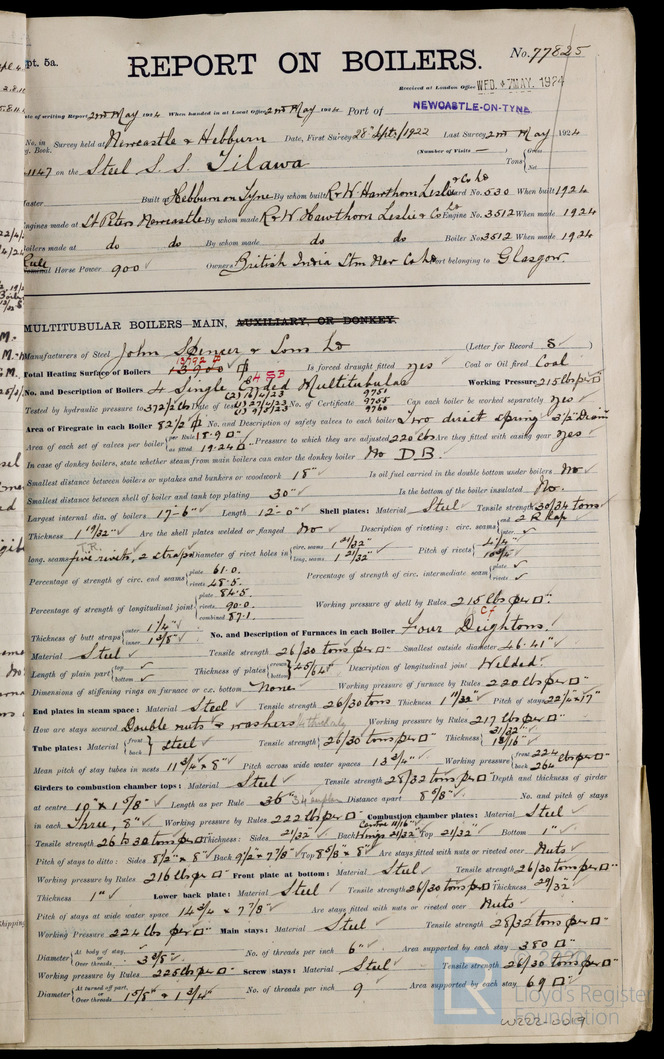 pt. 5a.
REPORT ON BOILERS.
No. 77825
Received at London Office WED. 7 MAY. 1924
Date of writing Report 2nd May 1924 When handed in at Local Office 2nd May 1924 Port of NEWCASTLE-ON-TYNE
No. in Reg. Book. Survey held at Newcastle & Hebburn Date, First Survey 28th Sept. 1922 Last Survey 2nd May 1924
(Number of Visits —) Tons {Gross Net
1147 on the Steel S. S. Tilawa
Master Built at Hebburn on Tyne By whom built R & W Hawthorn Leslie & Co Ld Yard No. 530 When built 1924
Engines made at St Peters Newcastle By whom made R & W Hawthorn Leslie & Co Ld Engine No. 3512 When made 1924
Boilers made at do do By whom made do do Boiler No 3512 When made 1924
Full Nominal Horse Power 900 Owners British India Stm Nav Co Ld Port belonging to Glasgow.
MULTITUBULAR BOILERS—MAIN, AUXILIARY, OR DONKEY.
Manufacturers of Steel John Spencer & Sons Ld (Letter for Record S)
Total Heating Surface of Boilers Is forced draught fitted yes Coal or Oil fired Coal
No. and Description of Boilers 4 Single Ended Multitubular Working Pressure 215 lbs per □"
Tested by hydraulic pressure to 372½ lbs Date of test No. of Certificate 9751 9755 9760 Can each boiler be worked separately yes
Area of Firegrate in each Boiler 82½ No. and Description of safety valves to each boiler Two direct spring 3½" Diam
Area of each set of valves per boiler {per Rule 18.9 □" as fitted 19.24 □" Pressure to which they are adjusted 220 lbs Are they fitted with easing gear yes
In case of donkey boilers, state whether steam from main boilers can enter the donkey boiler No D.B.
Smallest distance between boilers or uptakes and bunkers or woodwork 18" Is oil fuel carried in the double bottom under boilers No
Smallest distance between shell of boiler and tank top plating 30" Is the bottom of the boiler insulated No.
Largest internal dia. of boilers 17'-6" Length 12'-0" Shell plates: Material Steel Tensile strength 30/34 tons
Thickness 1 19/32" Are the shell plates welded or flanged No Description of riveting: circ. seams {end 2 R Lap
long. seams T.R. five rivets, 2 straps Diameter of rivet holes in {circ. seams 1 21/32" long. seams 1 21/32" Pitch of rivets
Percentage of strength of circ. end seams {plate 61.0 rivets 48.5 Percentage of strength of circ. intermediate seam {plate rivets
Percentage of strength of longitudinal joint {plate 84.5 rivets 90.0 combined 87.1 Working pressure of shell by Rules 215 lbs per □"
Thickness of butt straps {outer 1¼" inner 1⅜" No. and Description of Furnaces in each Boiler Four Deightons
Material Steel Tensile strength 26/30 tons per □" Smallest outside diameter 46.41"
Length of plain part {top bottom Thickness of plates {crown bottom 45/64" Description of longitudinal joint Welded
Dimensions of stiffening rings on furnace or c.c. bottom None Working pressure of furnace by Rules 220 lbs per □"
End plates in steam space: Material Steel Tensile strength 26/30 tons Thickness 1 11/32" Pitch of stays 22¼ × 17"
How are stays secured Double nuts & washers Working pressure by Rules 217 lbs per □"
Tube plates: Material {front back} Steel Tensile strength {26/30 tons per □" Thickness {31/32" 13/16"
Mean pitch of stay tubes in nests 11¾ × 8" Pitch across wide water spaces 13¾" Working pressure {front 224 back 264 lbs per □"
Girders to combustion chamber tops: Material Steel Tensile strength 28/32 tons per □" Depth and thickness of girder
at centre 10" × 1⅝" Length as per Rule 36" Distance apart 8⅝" No. and pitch of stays
in each Three, 8" Working pressure by Rules 222 lbs per □" Combustion chamber plates: Material Steel
Tensile strength 26 to 30 tons per □" Thickness: Sides 21/32" Back Centre 11/16" Wings 21/32" Top 21/32" Bottom 1"
Pitch of stays to ditto: Sides 8½" × 8" Back 9½" × 7⅞" Top 8⅝" × 8" Are stays fitted with nuts or riveted over Nuts
Working pressure by Rules 216 lbs per □" Front plate at bottom: Material Steel Tensile strength 26/30 tons per □"
Thickness 1" Lower back plate: Material Steel Tensile strength 26/30 tons per □" Thickness 29/32"
Pitch of stays at wide water space 14¾ × 7⅞" Are stays fitted with nuts or riveted over Nuts
Working Pressure 224 lbs per □" Main stays: Material Steel Tensile strength 28/32 tons per □"
Diameter {At body of stay, or Over threads 3⅜" No. of threads per inch 6" Area supported by each stay 380 □"
Working pressure by Rules 225 lbs per □" Screw stays: Material Steel Tensile strength 26/30 tons per □"
Diameter {At turned off part, or Over threads 1⅝" & 1¾" No. of threads per inch 9 Area supported by each stay 69 □"
LR Lloyd's Register Foundation
W222-0019